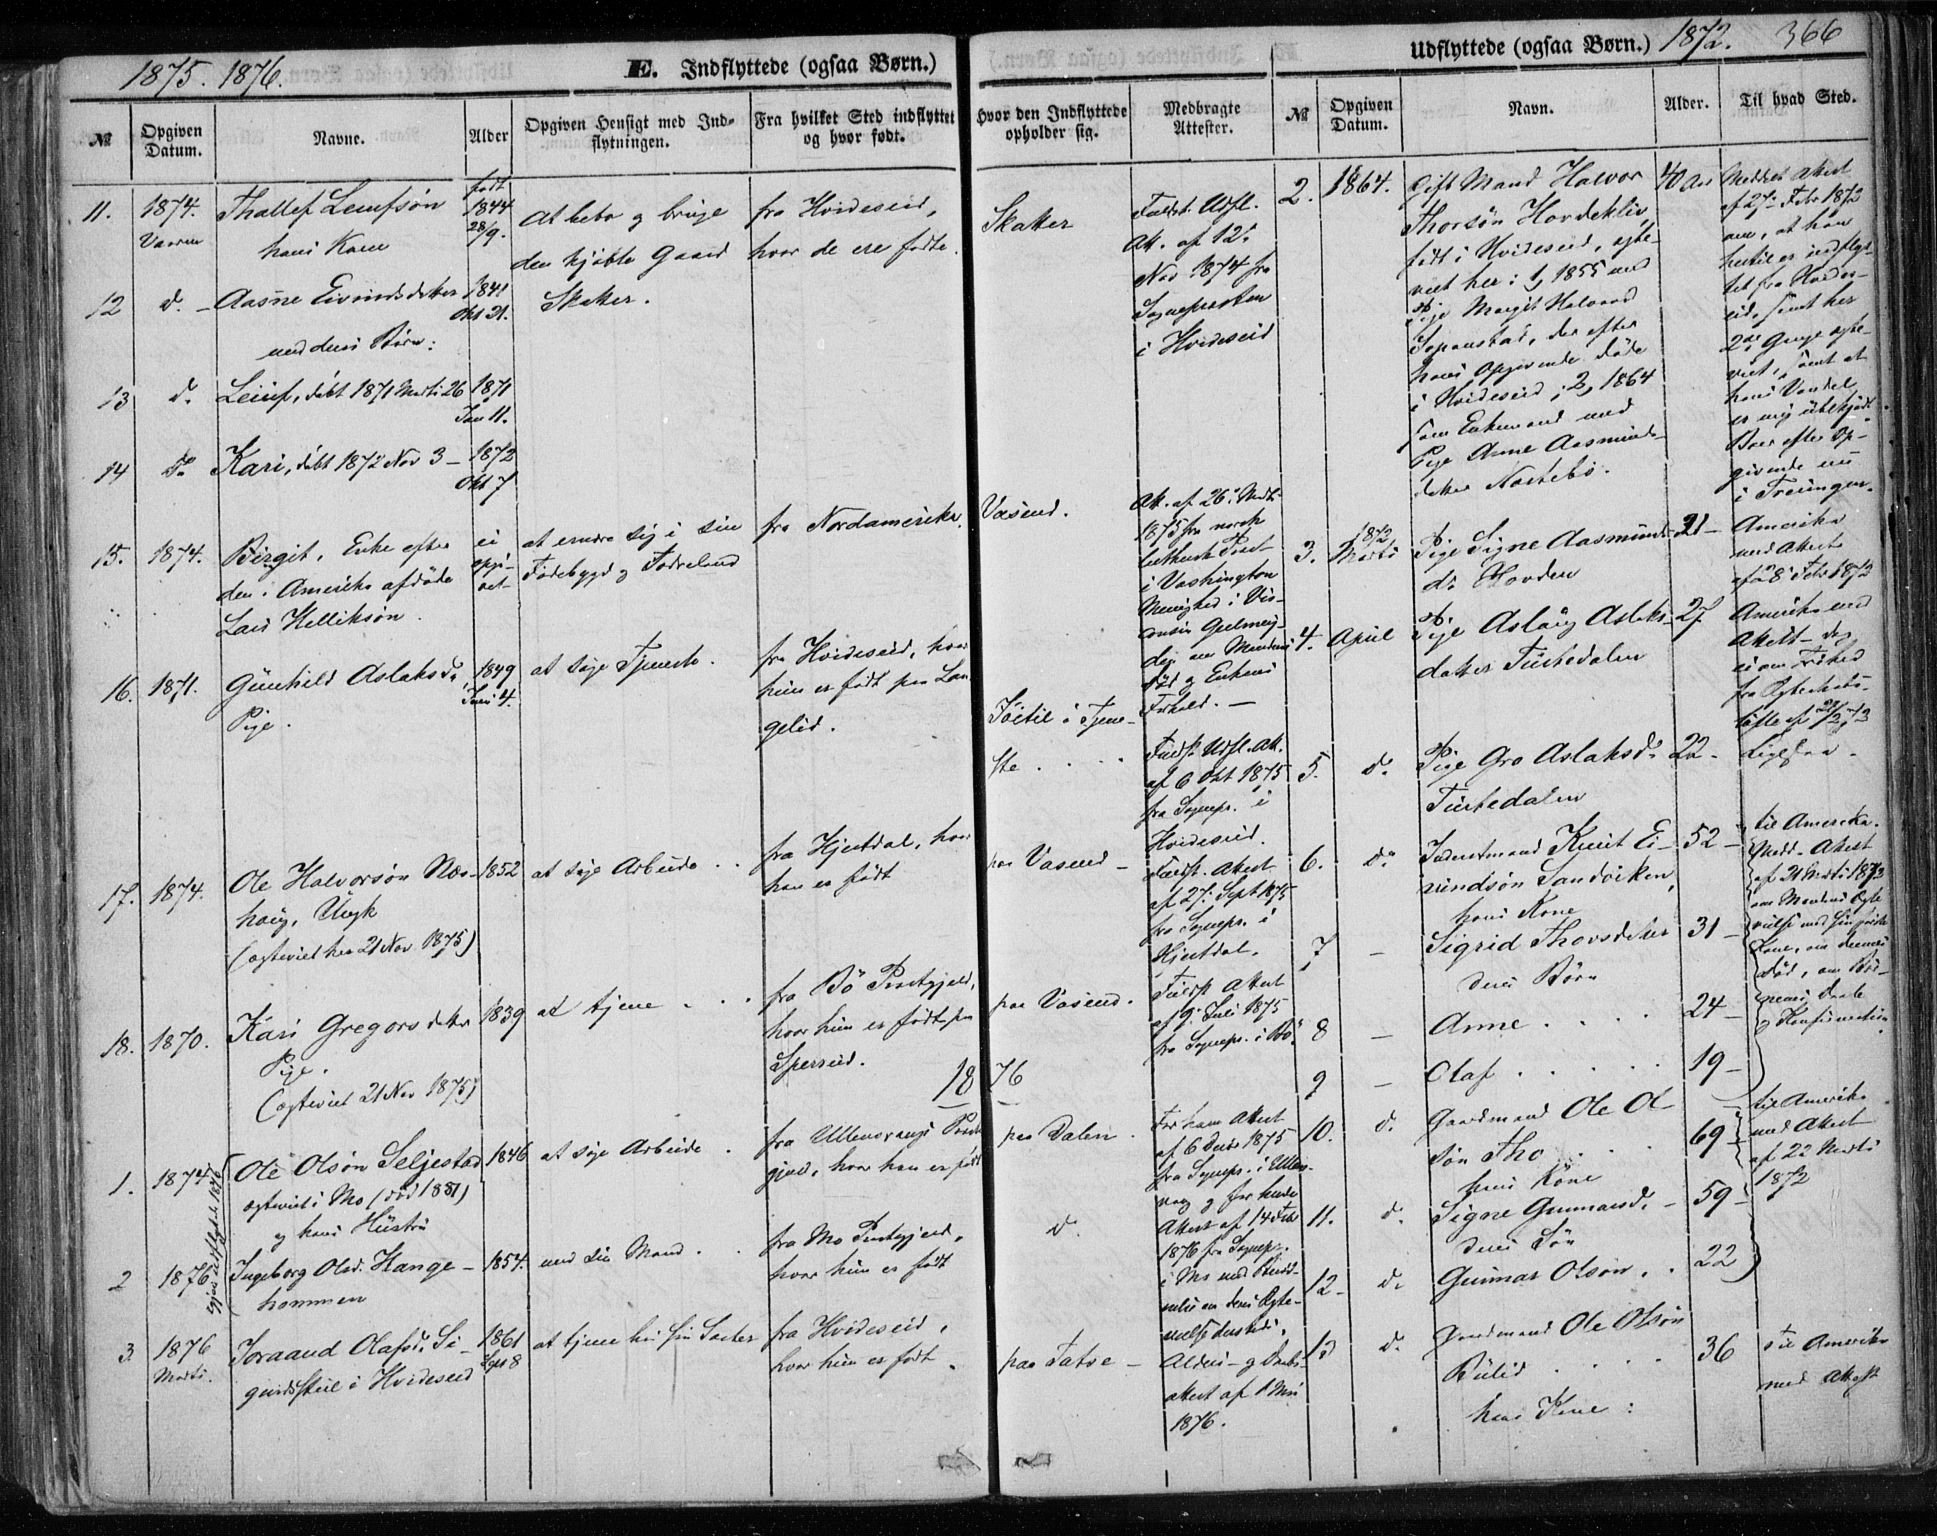 1875. 1876.
E. Indflyttede (ogsaa Børn.)
№
Opgiven Datum.
Navne.
Alder
Opgiven Hensigt med Indflytningen.
Fra hvilket Sted indflyttet og hvor født.
Hvor den Indflyttede opholder sig.
Medbragte Attester.
11.
1874.
Vaaren
hans Kone
født
1844
28/9.
at bebo og bruge
den kjøbte Gaard
Skaker.
fra Hvideseid,
hvor de ere fødte.
Skaker
Ak. af 12.
Nov 1874 fra
Sognepresten
i Hvideseid
12
d.
Aasne Eivindsdatter
med deres Børn:
1841
Okt 21.
13
d.
døbt 1871 Marti 26
1871
Jan 11.
14
d.
Kari, døbt 1872 Nov 3
1872
Okt 7
15.
1874.
Birgit, Enke efter
den i Amerika afdøde
Lars Kelliksøn.
ei
opgi-
vet
at ernære sig i sin
Fødebygd og Fødreland
fra Nordamerika.
Vasend.
Ak. af 26. Marti
1875 fra norsk
luthersk Prest
i Washington
Menighed i Vis-
død og Enkens
Forhold. —
16.
1871.
Gunhild Aslaksd.
Pige.
1849
Juni 4.
at søge Tjeneste.
fra Hvideseid, hvor
hun er født paa Lan
gelid.
i Tjene-
ste . . . .
Udfl. Ak.
af 6 Okt 1875
fra Sognepr. i
Hvideseid.
17.
1874.
Ole Halvorsøn Næs-
haug, Ungk
(ægteviet her 21 Nov 1875)
1852
at søge Arbeide . .
fra Hjertdal, hvor
han er født
paa Vasend –
Attest
af 27. Sept 1875
fra Sognepr. i
Hjertdal.
18.
1870.
Kari Gregorsdatter
Pige.
(ægteviet 21 Nov 1875)
1839
at tjene . . .
fra Bø Prestgjeld,
hvor hun er født paa
Sperseid.
paa Vasend.
Attest
af 9. Juli 1875
fra Sognepr. i Bø.
1876
1.
1874
Ole Olsøn Seljestad
ægteviet i Mo (død 1881)
og hans Hustru
1846
at søge Arbeide .
fra Ullensvangs Prest
gjeld, hvor han er født
paa Dalen .
For ham Attest
af 6 1875
fra Sognepr. i Ullens-
vang og for hende
Attest af 14 Febr
1876 fra Sognepr.
i Mo
2
1876
Ingeborg Olsd. Hange-
hommen
1854.
med sin Mand . .
fra Mo Prestgjeld,
hvor hun er født
d.
3.
1876
Marti.
Joraand Olafsd.
i Hvideseid
1861
8
at tjene hos sin Søster
fra Hvideseid,
hvor hun er født.
paa Tatve –
Alders- og Daabs-
attest af 1 Mai
1876.
Udflyttede (ogsaa Børn.) 1872. 366
№
Opgiven Datum.
Navn.
Alder.
Til hvad Sted.
2.
1864.
Gift Mand Halvor
Thorsøn Hovdekliv,
født i Hvideseid, ægte-
viet her i 1855 med
Pige Margit Halvorsd
der efter
hans Opgivende døde
i Hvideseid, 1864
som Enkemand med
Pige Anne Aasmunds-
datter Nostebø.
40 Aar
Meddelt Attest
af 27. Febr 1872
om, at han
hertil er indflyt-
tet fra Hvides-
eid, samt her
2de Gange ægte-
viet, samt at
hans Vandel
er mig ubekjendt.
Boer efter Op-
givende nu
i Treungen.
3.
1872
Marti
Pige Signe Aasmunds-
d. Hovden
21 –
Amerika
med Attest
af 28. Febr 1872
4.
April
Pige Aslaug Aslaks-
datter Tustedalen
27
Amerika med
Attest – dog
ei om Frihed
fra Ægteskabs-
løfte
5.
d.
Pige Gro Aslaksd.
Tustedalen
22 –
Ligesaa –
6.
d.
Knut Ei-
vindsøn Sandviken,
hans Kone
52 –
til Amerika.
Medd. Attest
af 21 Marti 1872
om Mandens Ægte
vielse med sin første
Kone, om dennes
Død, om Bør-
nenes Daab
og Konfirmation
7
–
Sigrid Thorsdatter
deres Børn
31 –
8
–
Anne . . . .
24 –
9
–
Olaf . . . . .
19 –
10.
d.
Gaardmand Ole Ol
søn Tho . . .
hans Kone
69 –
til Amerika
med Attest
af 22 Marti
1872
11.
d.
Signe Gunnarsd.
deres Søn
59 –
12.
d.
Gunnar Olsøn . .
22
13
d.
Gaardmand Ole Olsøn
Bulid . . . .
hans Kone :
36
til Amerika
med Attest